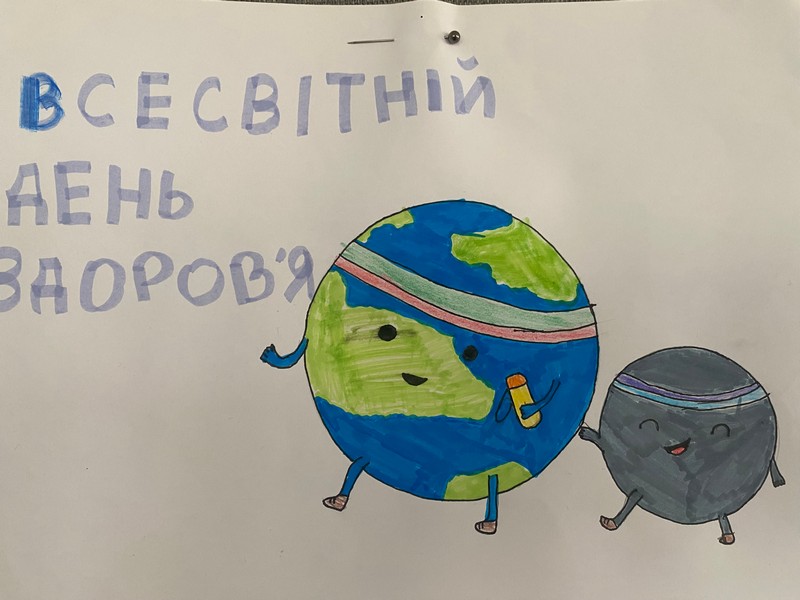 ВСЕСВІТНІЙ
ДЕНЬ
ЗДОРОВ'Я